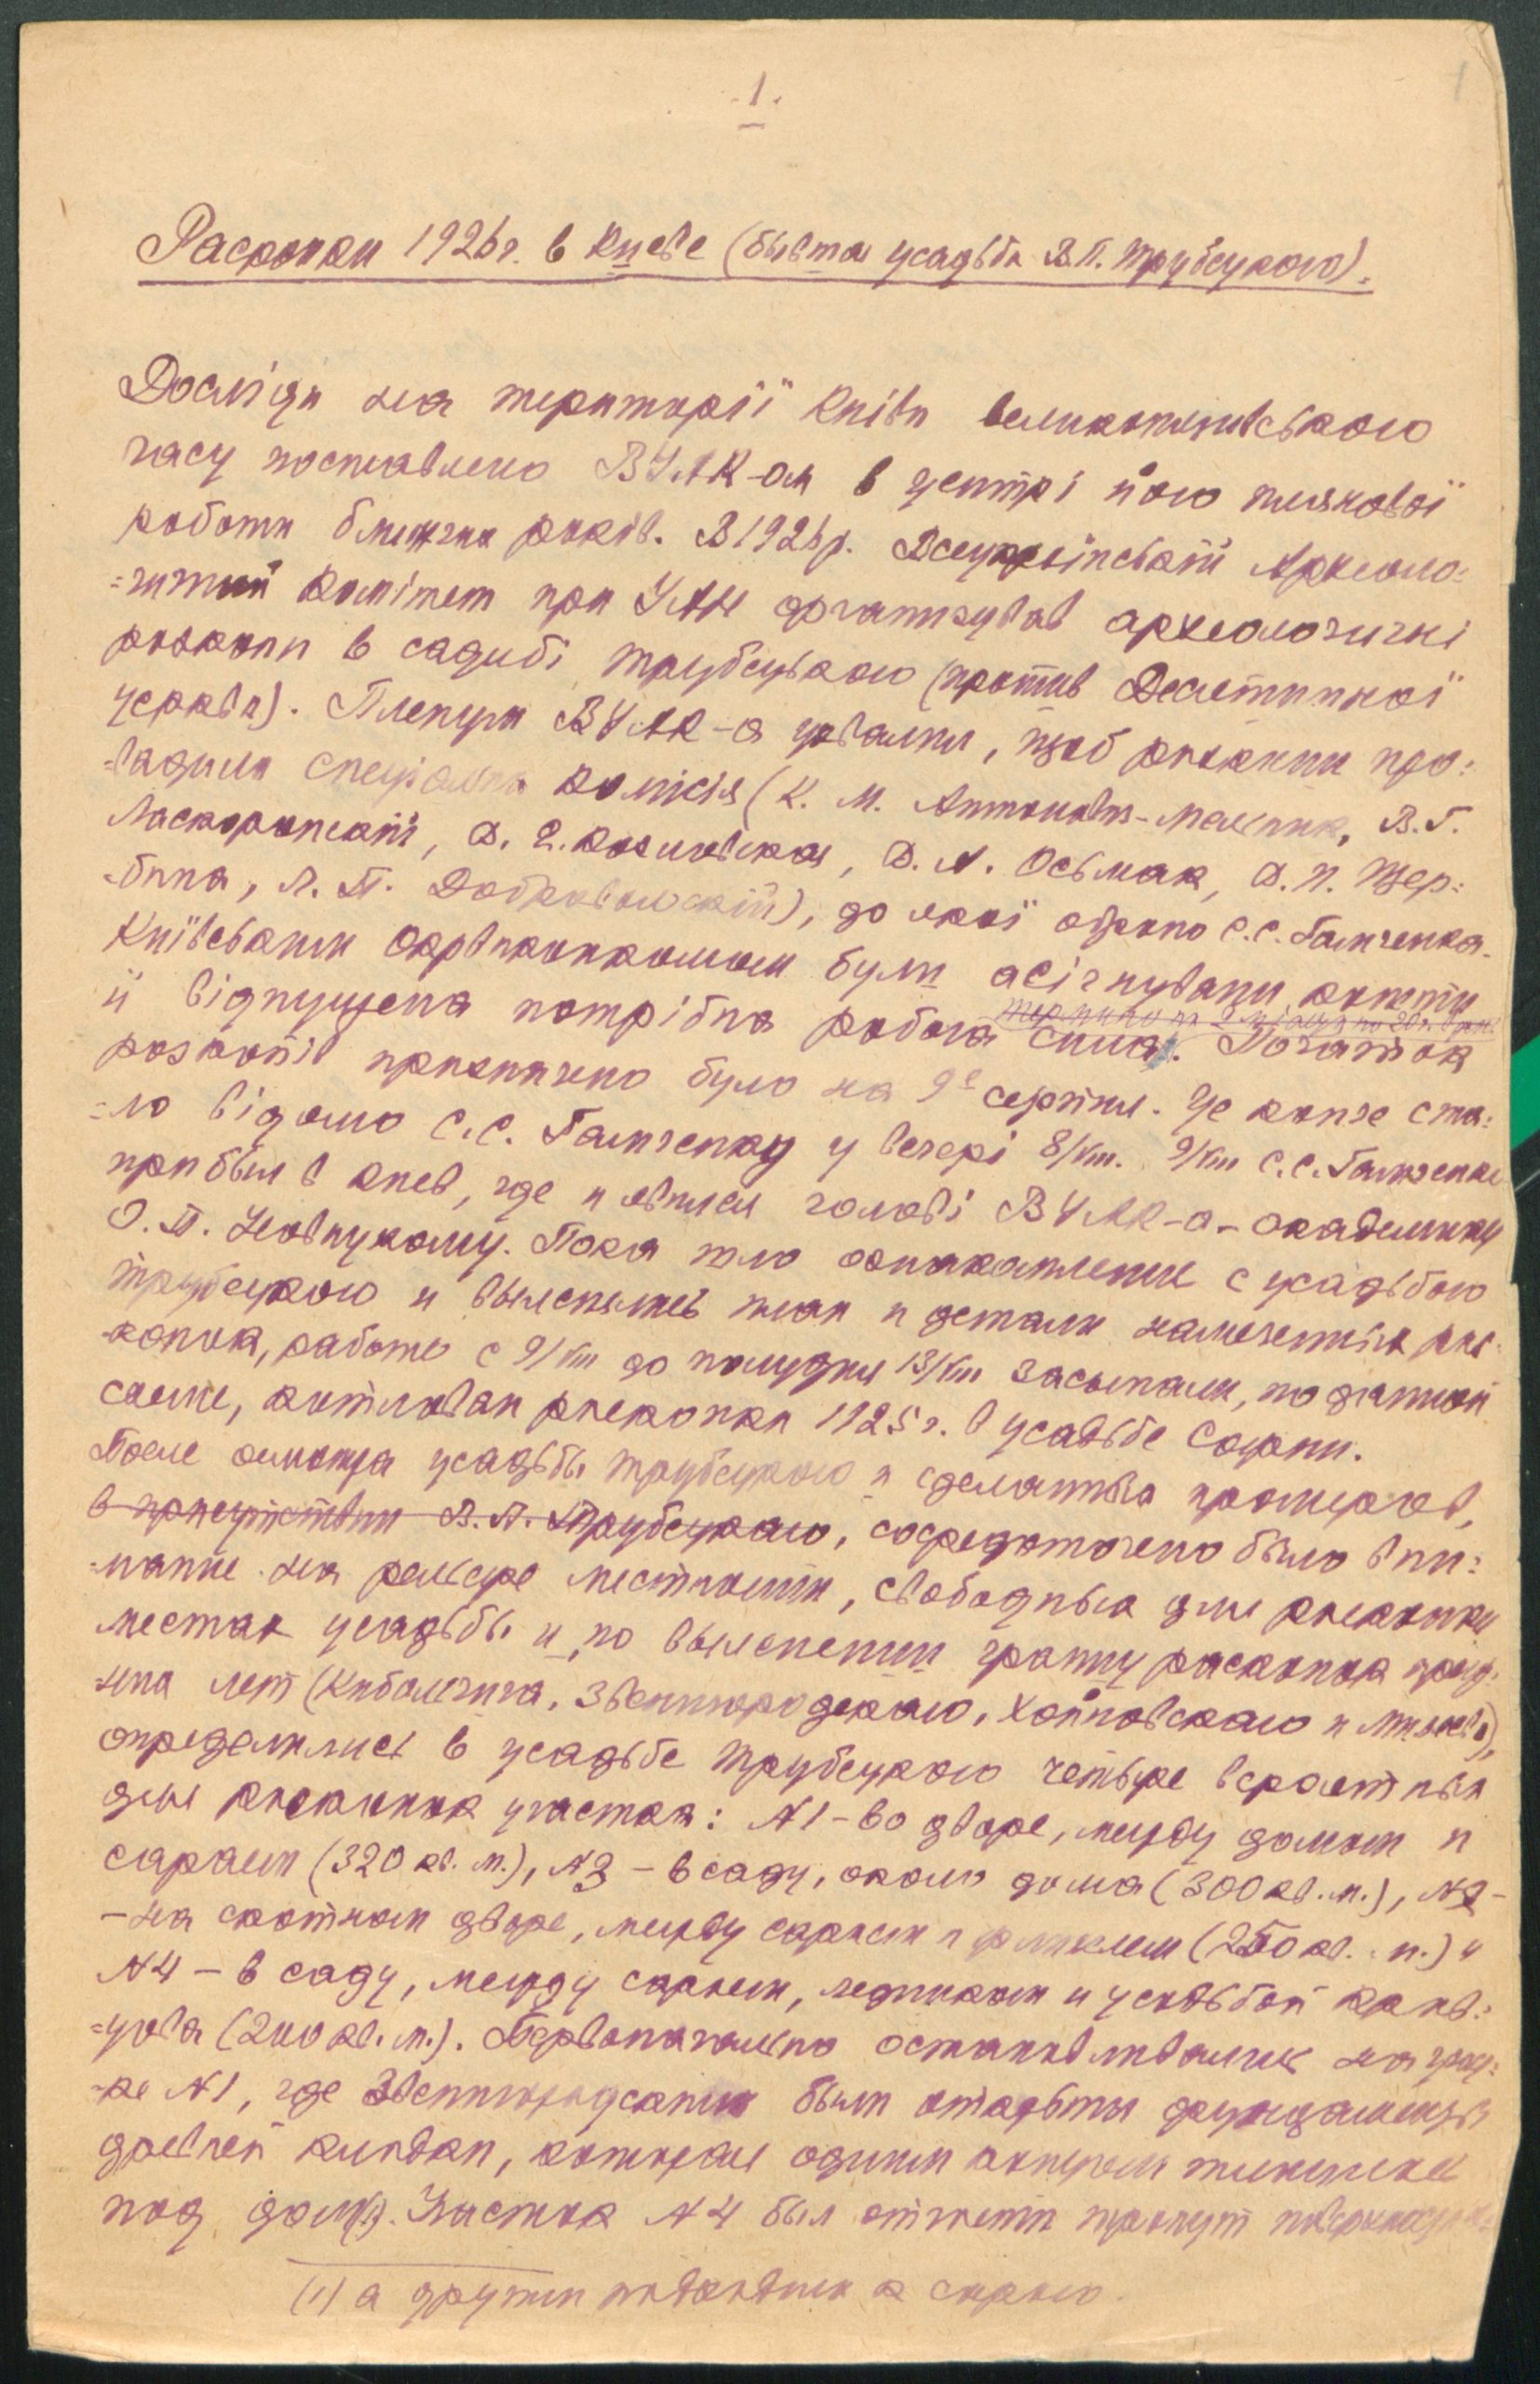 1.
1
Раскопки 1926 г. в Киеве (бывшая усадьба В.П. Трубецкого).
Досліди на території Київа великокнязівського
часу поставлено ВУАК-ом в центрі його планової
роботи ближчих років. В 1926 р. Всеукраїнський Археоло=
=гичний Комітет при УАН організував археологичні
розкопи в садибі Трубецького (против Десятинної
церкви). Пленум ВУАК-а ухвалив, щоб розкопи про=
=вадила спеціяльна комісія (К. М. Антонович-Мельник, В. Г.
Ляскоронский, В. Е. Козловская, В. А. Осьмак, Д. И. Щер=
=бина, Л. П. Добровольский), до якої обрано С. С. Гамченка.
Київським Окрвиконкомом були асігнувани кошти
й відпущена потрібна робоча сила. Початок
розкопів призначено було на 9е серпня. Це конче ста=
=ло відомо С. С. Гамченку у вечері 8/VIII. 9/VIII С. С. Гамченко
прибыл в Киев, где и явился голові ВУАК-а - академику
О. П. Новицкому. Пока шло ознакомление с усадьбою
Трубецкого и выяснялись план и детали намеченных рас=
=копок, рабочие с 9/VIII до полудня 13/VIII засыпали, по данной
схеме, котлован раскопки 1925 г. в усадьбе
После осмотра усадьбы Трубецкого и сделанных промеров,
в присутствии В. П. Трубецкого, сосредоточено было вни=
=мание на рельефе местности, свободных для раскопки
местах усадьбы и, по выяснении границ раскопок
лет (Кибальчича, Звенигородского, Хойновского и Милеева),
определились в усадьбе Трубецкого четыре вероятных
для раскопок участка: №1 - во дворе, между домом и
сараем (320 кв. м.), №3 - в саду, около дома (300 кв. м.), №2 -
- на скотном дворе, между сараем и флигелем (250 кв. м.) и
№4 - в саду, между сараем, ледником и усадьбой Крив=
=цова (200 кв. м.). Первоначально остановливались на
№1, где Звенигородским были отрыты фундаменты
древней кладки, которая одним концом
под дом(1). Участок №4 был отчетли
(1) а другим подходила к сараю.